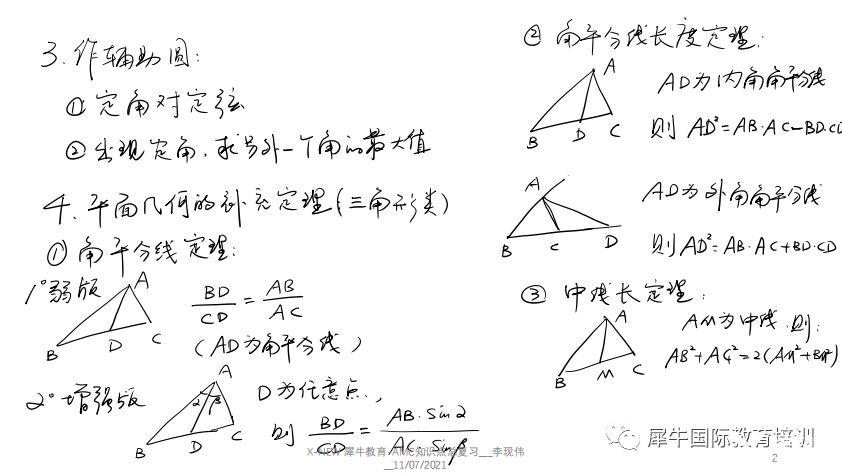 3. 作辅助圆:
① 定角对定弦
② 出现定角,求另外一个角的最大值
4. 平面几何的补充定理(三角形类)
① 角平分线定理:
1° 弱版
A
B
D
C
BD/CD = AB/AC
(AD为角平分线)
2° 增强版
A
2 β
B
D
C
D为任意点,
则 BD/CD = AB·Sin2/AC·Sinβ
② 角平分线长度定理:
A
B
D
C
AD为内角角平分线
则 AD²=AB·AC-BD·CD
A
B
C
D
AD为外角角平分线
则AD²=AB·AC+BD·CD
③ 中线长定理:
A
B
M
C
AM为中线.则:
AB²+AC²=2(AM²+BM²)
犀牛教育
知识点总复习__李现伟
__11/07/2021
犀牛国际教育培训
2